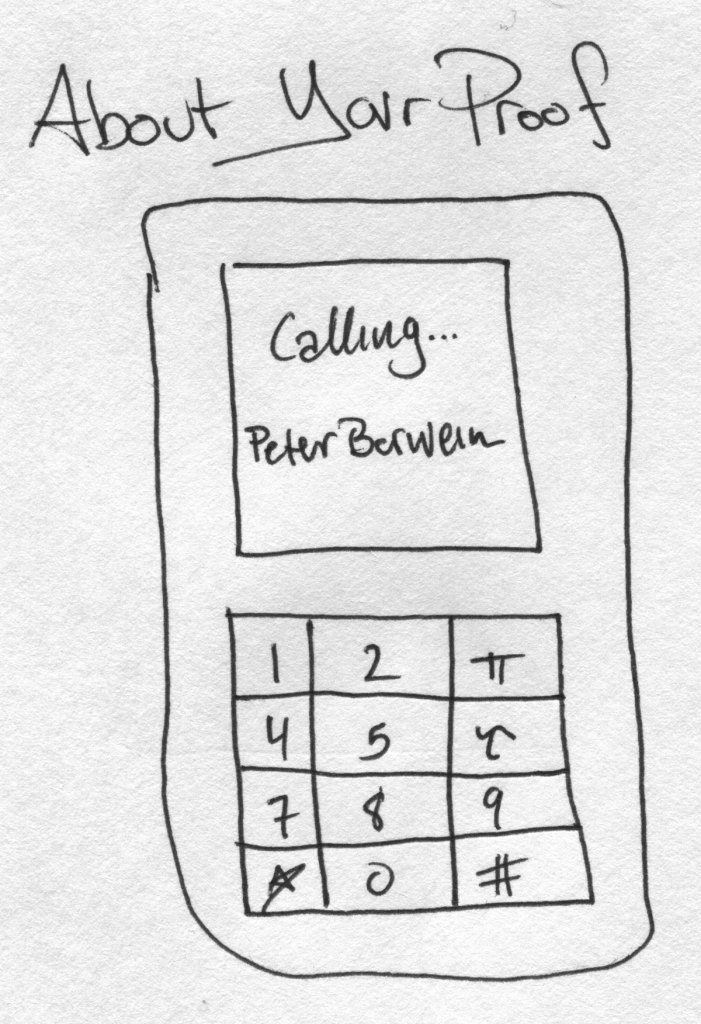 About Your Proof
Calling...
Peter Borwein
1 2 π
4 5 τ
7 8 9
* 0 #